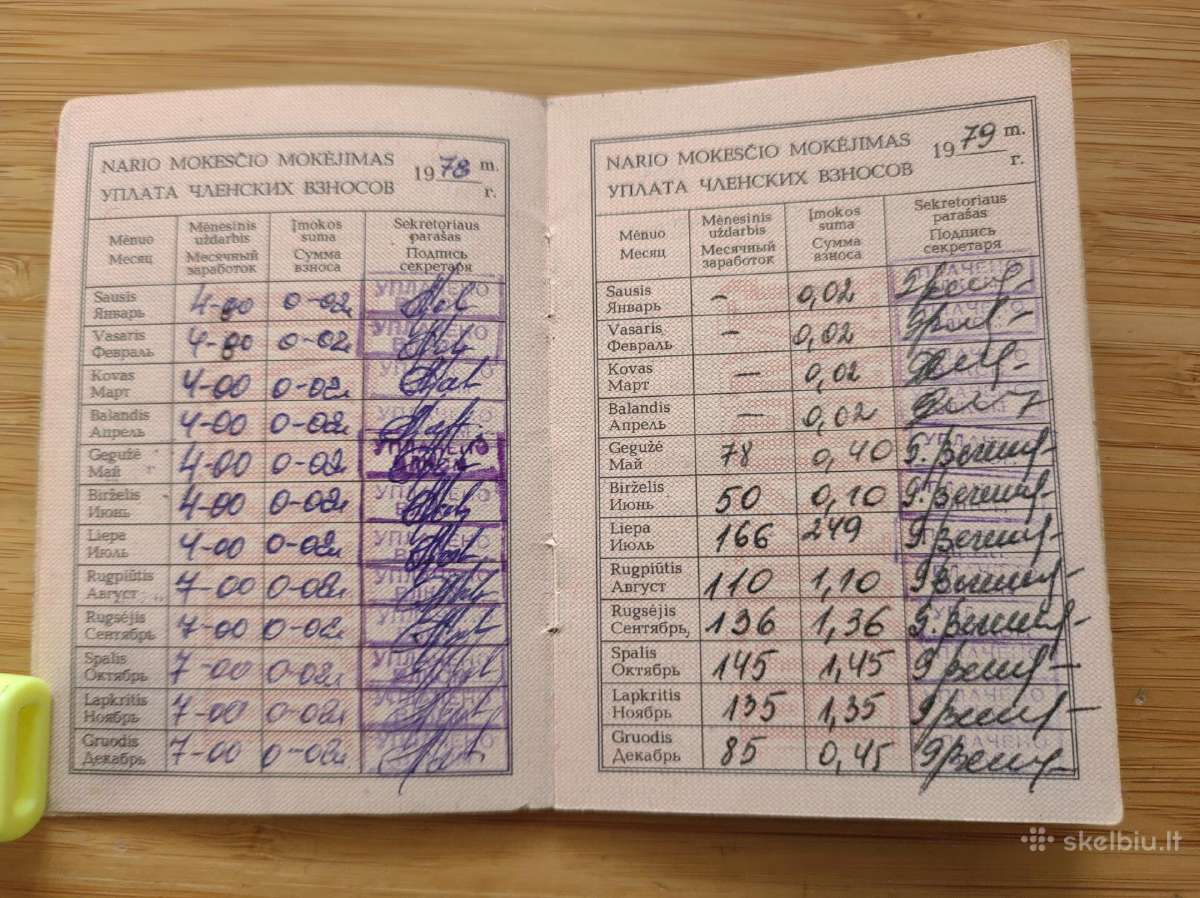 NARIO MOKESČIO MOKĖJIMAS
УПЛАТА ЧЛЕНСКИХ ВЗНОСОВ
1978 m.
г.
Mėnuo
Месяц
Mėnesinis
uždarbis
Месячный
заработок
Įmokos
suma
Сумма
взноса
Sekretoriaus
parašas
Подпись
секретаря
УПЛАЧЕНО
Sausis
Январь
4-00 0-02
Vasaris
Февраль
4-00 0-02
Kovas
Март
4-00 0-02
Balandis
Апрель
4-00 0-02
Gegužė
Май
4-00 0-02
Birželis
Июнь
4-00 0-02
Liepa
Июль
4-00 0-02
Rugpiūtis
Август
7-00 0-02
Rugsėjis
Сентябрь
7-00 0-02
Spalis
Октябрь
7-00 0-02
Lapkritis
Ноябрь
7-00 0-02
Gruodis
Декабрь
7-00 0-02
NARIO MOKESČIO MOKĖJIMAS
УПЛАТА ЧЛЕНСКИХ ВЗНОСОВ
1979 m.
г.
Mėnuo
Месяц
Mėnesinis
uždarbis
Месячный
заработок
Įmokos
suma
Сумма
взноса
Sekretoriaus
parašas
Подпись
секретаря
Sausis
Январь
– 0,02
Vasaris
Февраль
– 0,02
Kovas
Март
— 0,02
Balandis
Апрель
— 0,02
Gegužė
Май
78 0,40
Birželis
Июнь
50 0,10
Liepa
Июль
166 249
Rugpiūtis
Август
110 1,10
Rugsėjis
Сентябрь
136 1,36
Spalis
Октябрь
145 1,45
Lapkritis
Ноябрь
135 1,35
Gruodis
Декабрь
85 0,45
skelbiu.lt